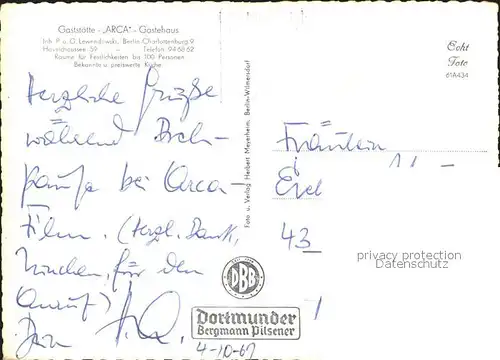 Gaststätte - „ARCA" - Gästehaus
Inh. P. u. G. Lewandowski, Berlin-Charlottenburg 9
Heerstraße 59 - Telefon 94 68 62
Räume für Festlichkeiten bis 100 Personen
Bekannte u. preiswerte Küche
Echt
Foto
61A434
Herzliche Grüße
während Dreh-
pause bei Arca-
Film. (Herzl. Dank,
für den
Anruf)
Dein
Foto u. Verlag Herbert Meyerheim, Berlin-Wilmersdorf
Fräulein
43
privacy protection
Datenschutz
DBB
Dortmunder
Bergmann Pilsener
4-10-62